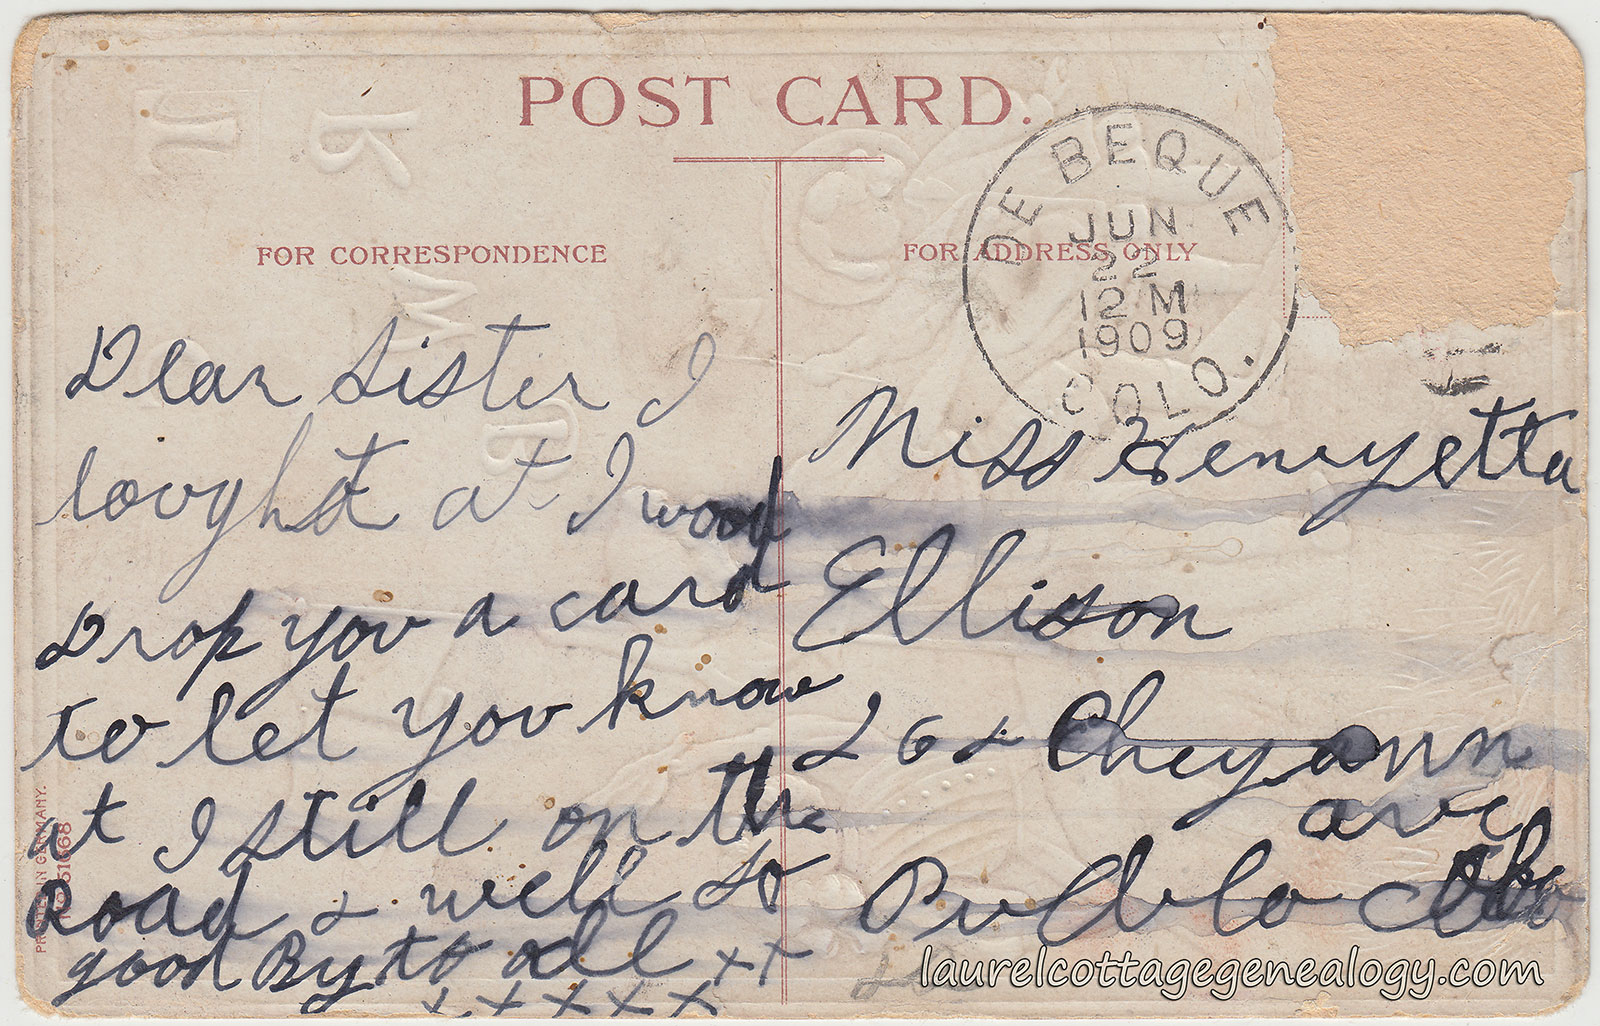 POST CARD.
FOR CORRESPONDENCE
FOR ADDRESS ONLY
DE BEQUE
JUN
22
12 M
1909
COLO.
Dear Sister I
lovght at I wood
Drop yov a card
to let yov know
at I still on the
Road & well So
good By to all x x
x x x x x x
Miss Henryetta
Ellison
Cheyann
ave
Pueblo Colo
PRINTED IN GERMANY.
laurelcottagegenealogy.com